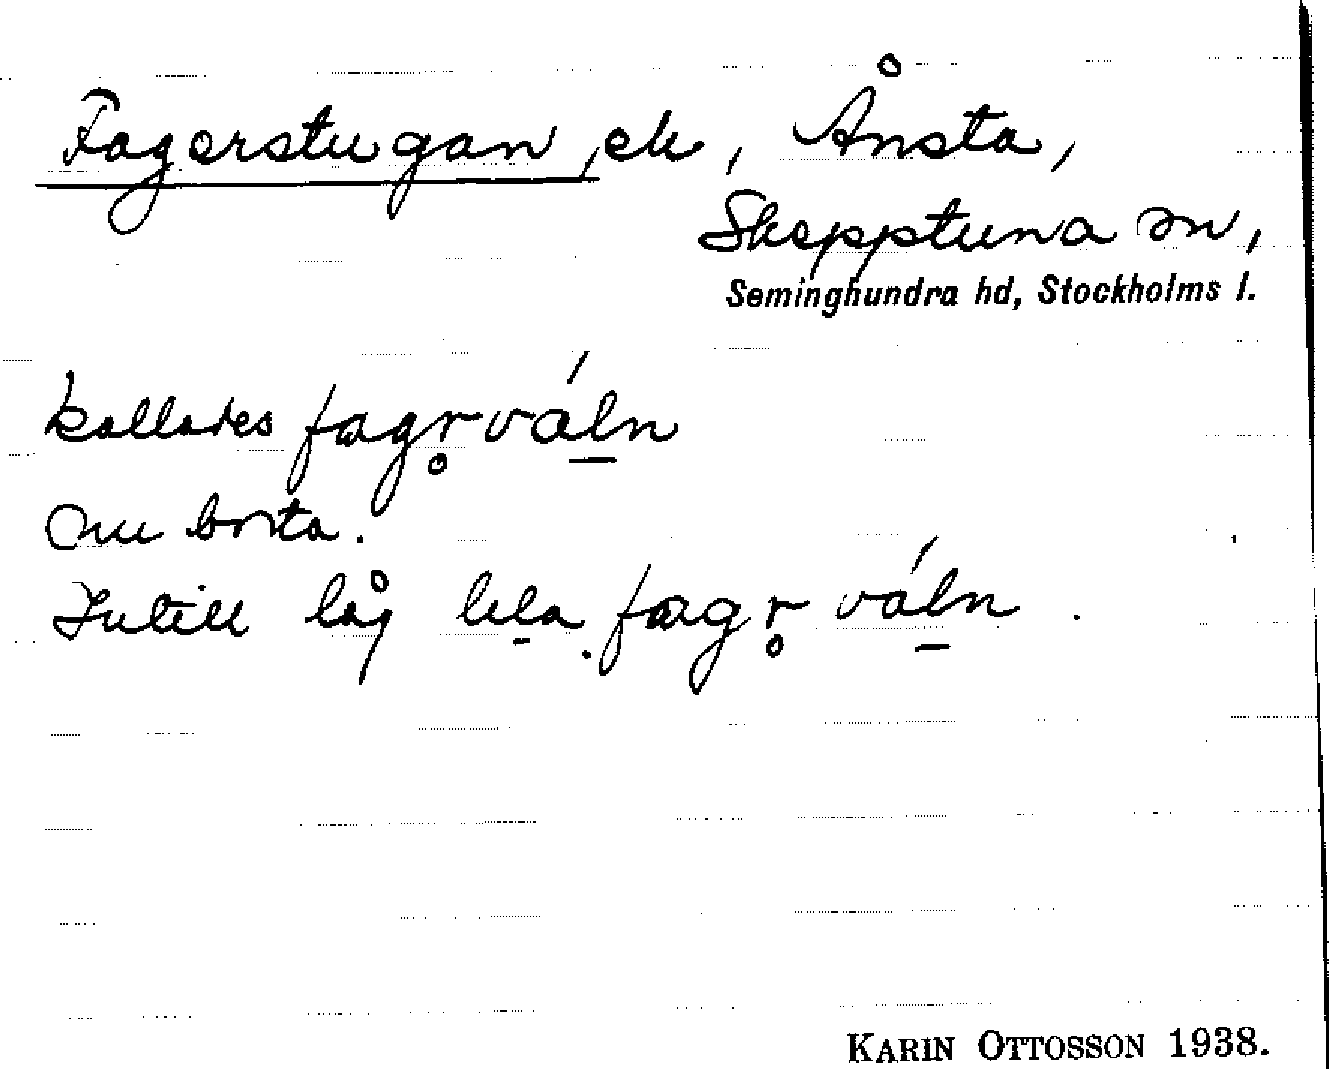 Fagerstugan, eln, Ånsta,
Skepptuna sn,
Seminghundra hd, Stockholms l.
kallades fagr̥váln
nu borta.
Intill låg lila fagr̥ váln.
KARIN OTTOSSON 1938.